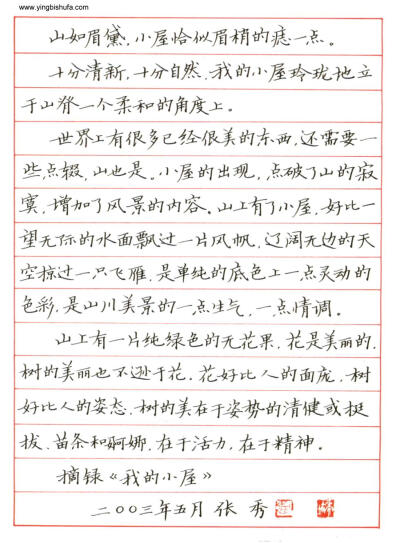 www.yingbishufa.com
山如眉黛,小屋恰似眉梢的痣一点。
十分清新,十分自然,我的小屋玲珑地立
于山脊一个柔和的角度上。
世界上有很多已经很美的东西,还需要一
些点缀,山也是。小屋的出现,点破了山的寂
寞,增加了风景的内容。山上有了小屋,好比一
望无际的水面飘过一片风帆,辽阔无边的天
空掠过一只飞雁,是单纯的底色上一点灵动的
色彩,是山川美景的一点生气,一点情调。
山上有一片纯绿色的无花果,花是美丽的,
树的美丽也不逊于花。花好比人的面庞,树
好比人的姿态,树的美在于姿势的清健或挺
拔、苗条和婀娜,在于活力,在于精神。
摘录《我的小屋》
二〇〇三年五月 张秀